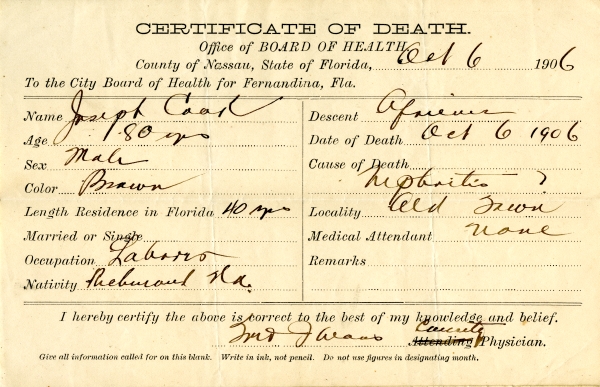 CERTIFICATE OF DEATH.
Office of BOARD OF HEALTH
County of Nassau, State of Florida, Oct 6 1906
To the City Board of Health for Fernandina, Fla.
Name Joseph Cook
Age 80 yrs
Sex Male
Color Brown
Length Residence in Florida 40 yrs
Married or Single
Occupation Laborer
Nativity
Descent African
Date of Death Oct 6 1906
Cause of Death
Nephritis ?
Locality Old Town
Medical Attendant none
Remarks
I hereby certify the above is correct to the best of my knowledge and belief.
County
Attending Physician.
Give all information called for on this blank. Write in ink, not pencil. Do not use figures in designating month.